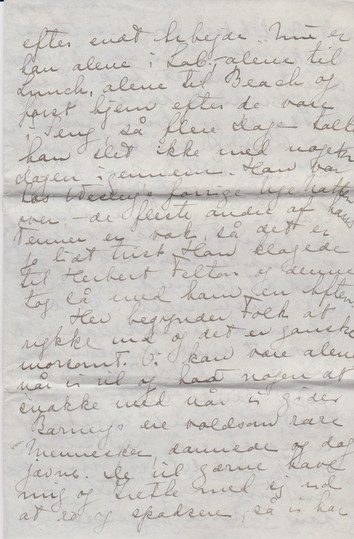 efter endt Arbejde. Nu er
han alene i Lab., alene til
Lunch, alene til Beach og
først hjem efter de var
i Seng, så flere dage talte
han slet ikke med nogen
dagen igennem. Han var
hos Wesleys forrige Uge
over, - de fleste andre af hans
Venner er væk, så det er
jo lidt trist. Han klagede
til Herbert Felton og denne
tog så med ham en Aften
Her begynder Folk at
rykke ind og det er ganske
morsomt. Vi kan være alene
når vi vil og have nogen at
snakke med når vi gider
Barneys ere voldsom rare
Mennesker, dannede og
jævne. De vil gærne have
mig og med sig ud
at ro og spadsere, så vi har